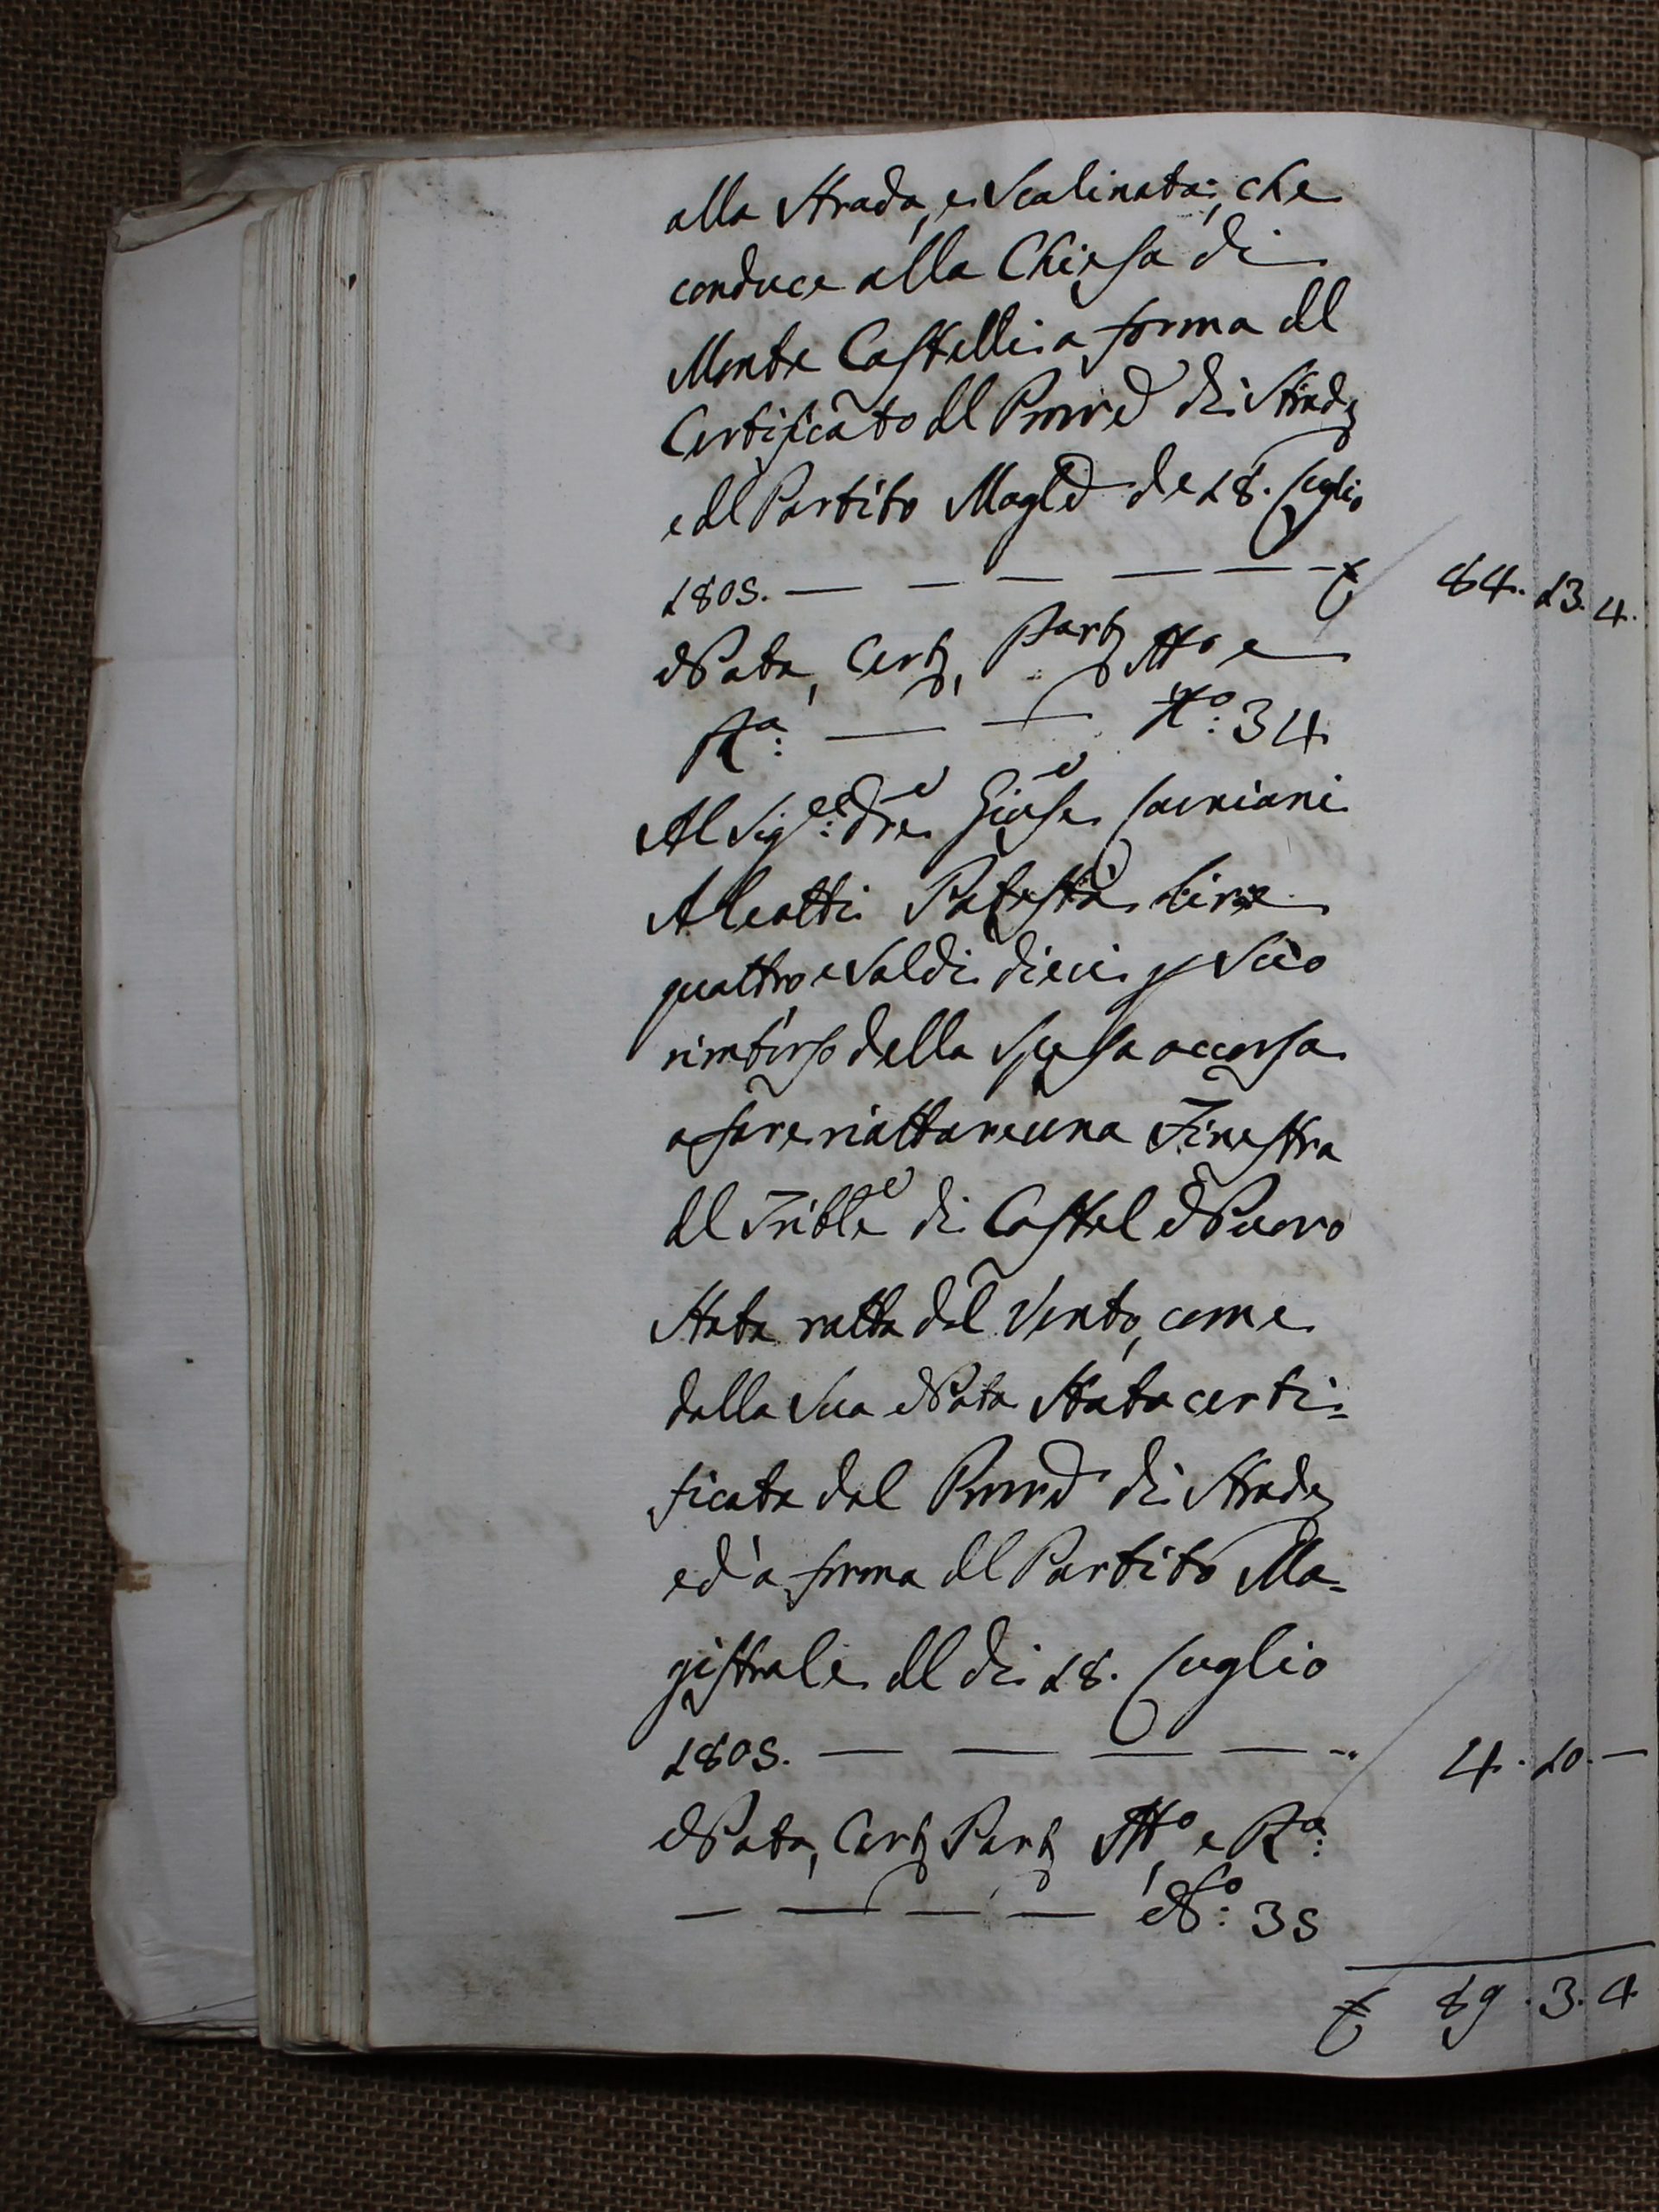 alla Strada, e Scalinata, che
conduce alla Chiesa di
Monte Castelli a forma del
Certificato del Provre di Strade
e del Partito Magle de 18. Luglio
1805. — — — — — £ 84. 13. 4.
Nota, Cert, Part, Atto e
Ra: — — No: 34
Al Sige: Dre Giuse Lavriani
Aleotti Potestà Lire
quattro e Soldi dieci p Suo
rimborso della Spesa occorsa
a fare riattare una Finestra
del Trible di Castel Nuovo
Stata rotta dal Vento, come
dalla Sua Nota Stata certi=
ficata dal Provre di Strade
ed à forma del Partito Ma=
gistrale del dì 18. Luglio
1805. — — — — " 4. 10. —
Nota, Cert, Part, Atto e Ra:
— — — — No: 35
£ 89. 3. 4